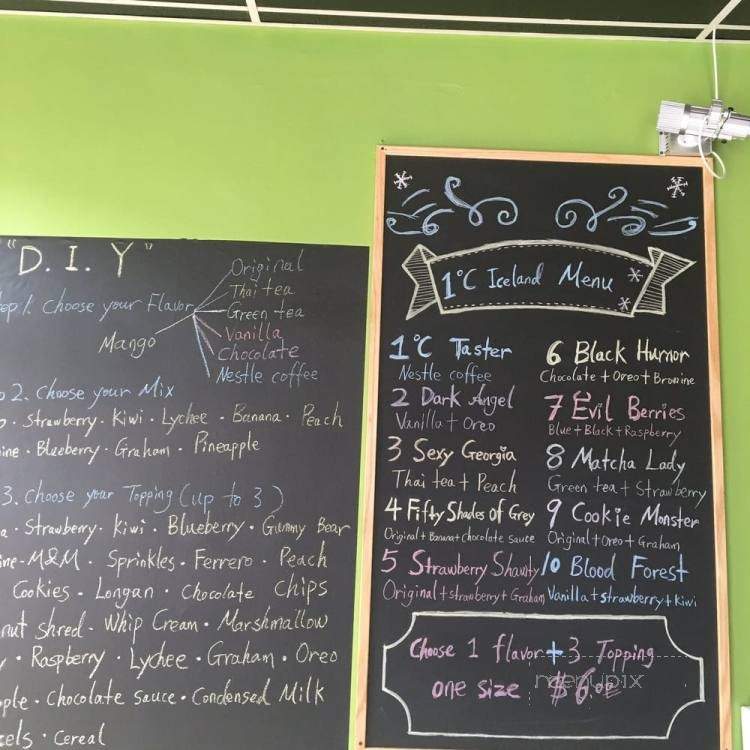 "D. I. Y"
1. Choose your Flavor
Original
Thai tea
Green tea
Vanilla
Chocolate
Nestle coffee
Mango
2. Choose your Mix
Strawberry · Kiwi · Lychee · Banana · Peach
Blueberry · Graham · Pineapple
3. Choose your Topping (up to 3)
Strawberry · Kiwi · Blueberry · Gummy Bear
M&M · Sprinkles · Ferrero · Peach
Cookies · Longan · Chocolate Chips
shred · Whip Cream · Marshmallow
Raspberry · Lychee · Graham · Oreo
Chocolate sauce · Condensed Milk
Cereal
1°C Iceland Menu
1°C Taster
Nestle coffee
2 Dark Angel
Vanilla + Oreo
3 Sexy Georgia
Thai tea + Peach
4 Fifty Shades of Grey
Original + Banana + Chocolate sauce
5 Strawberry Shawty
Original + strawberry + Graham
6 Black Humor
Chocolate + Oreo + Bronine
7 Evil Berries
Blue + Black + Raspberry
8 Matcha Lady
Green tea + Strawberry
9 Cookie Monster
Original + Oreo + Graham
10 Blood Forest
Vanilla + strawberry + kiwi
Choose 1 flavor + 3 Topping
one size $6.00
menupix